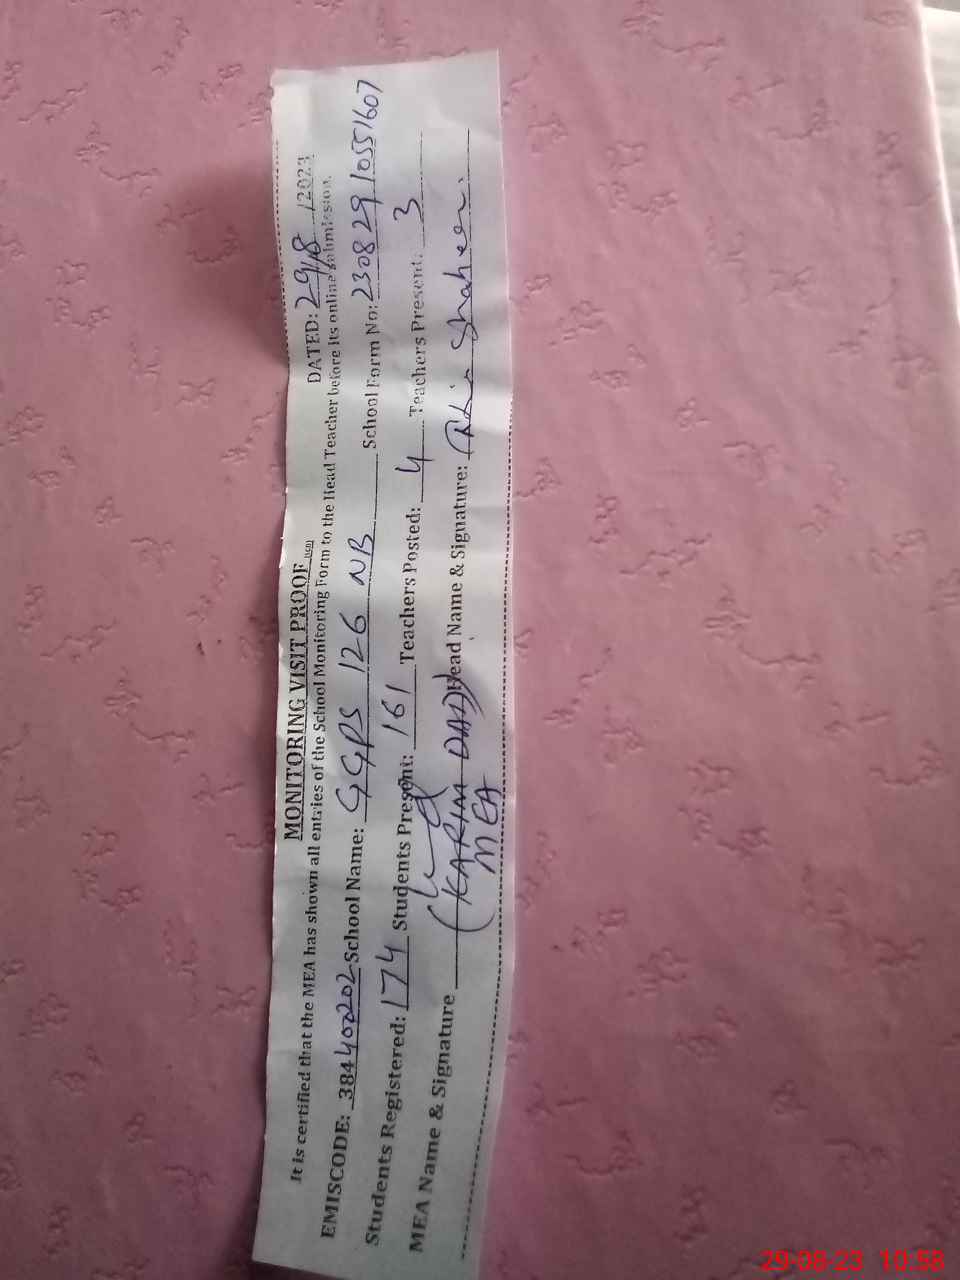 MONITORING VISIT PROOF
DATED: 29/8/2023
It is certified that the MEA has shown all entries of the School Monitoring Form to the Head Teacher before its online submission.
EMISCODE: 38440202 School Name: GGPS 126 NB School Form No: 23082910551607
Students Registered: 174 Students Present: 161 Teachers Posted: 4 Teachers Present: 3
MEA Name & Signature (KARIM DAD) Head Name & Signature: Shaheen.
MEA
29-08-23 10:58